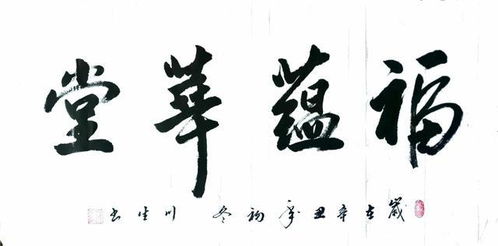 福蕴華堂
歲在辛丑年初冬 川生书